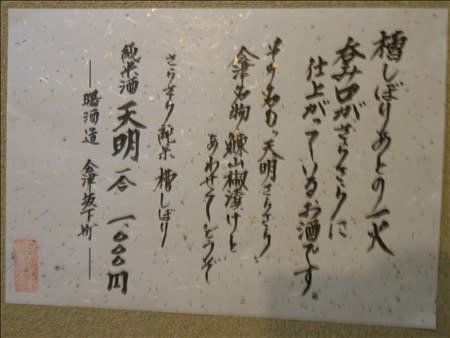 槽しぼりあとの一火
呑み口がさらさらに
仕上がっているお酒です。
その名も、天明さらさら
会津名物鰊山椒漬けと
あわせてどうぞ
さらさら純米 槽しぼり
純米酒 天明 一合 一、〇〇〇円
―曙酒造 会津坂下町―